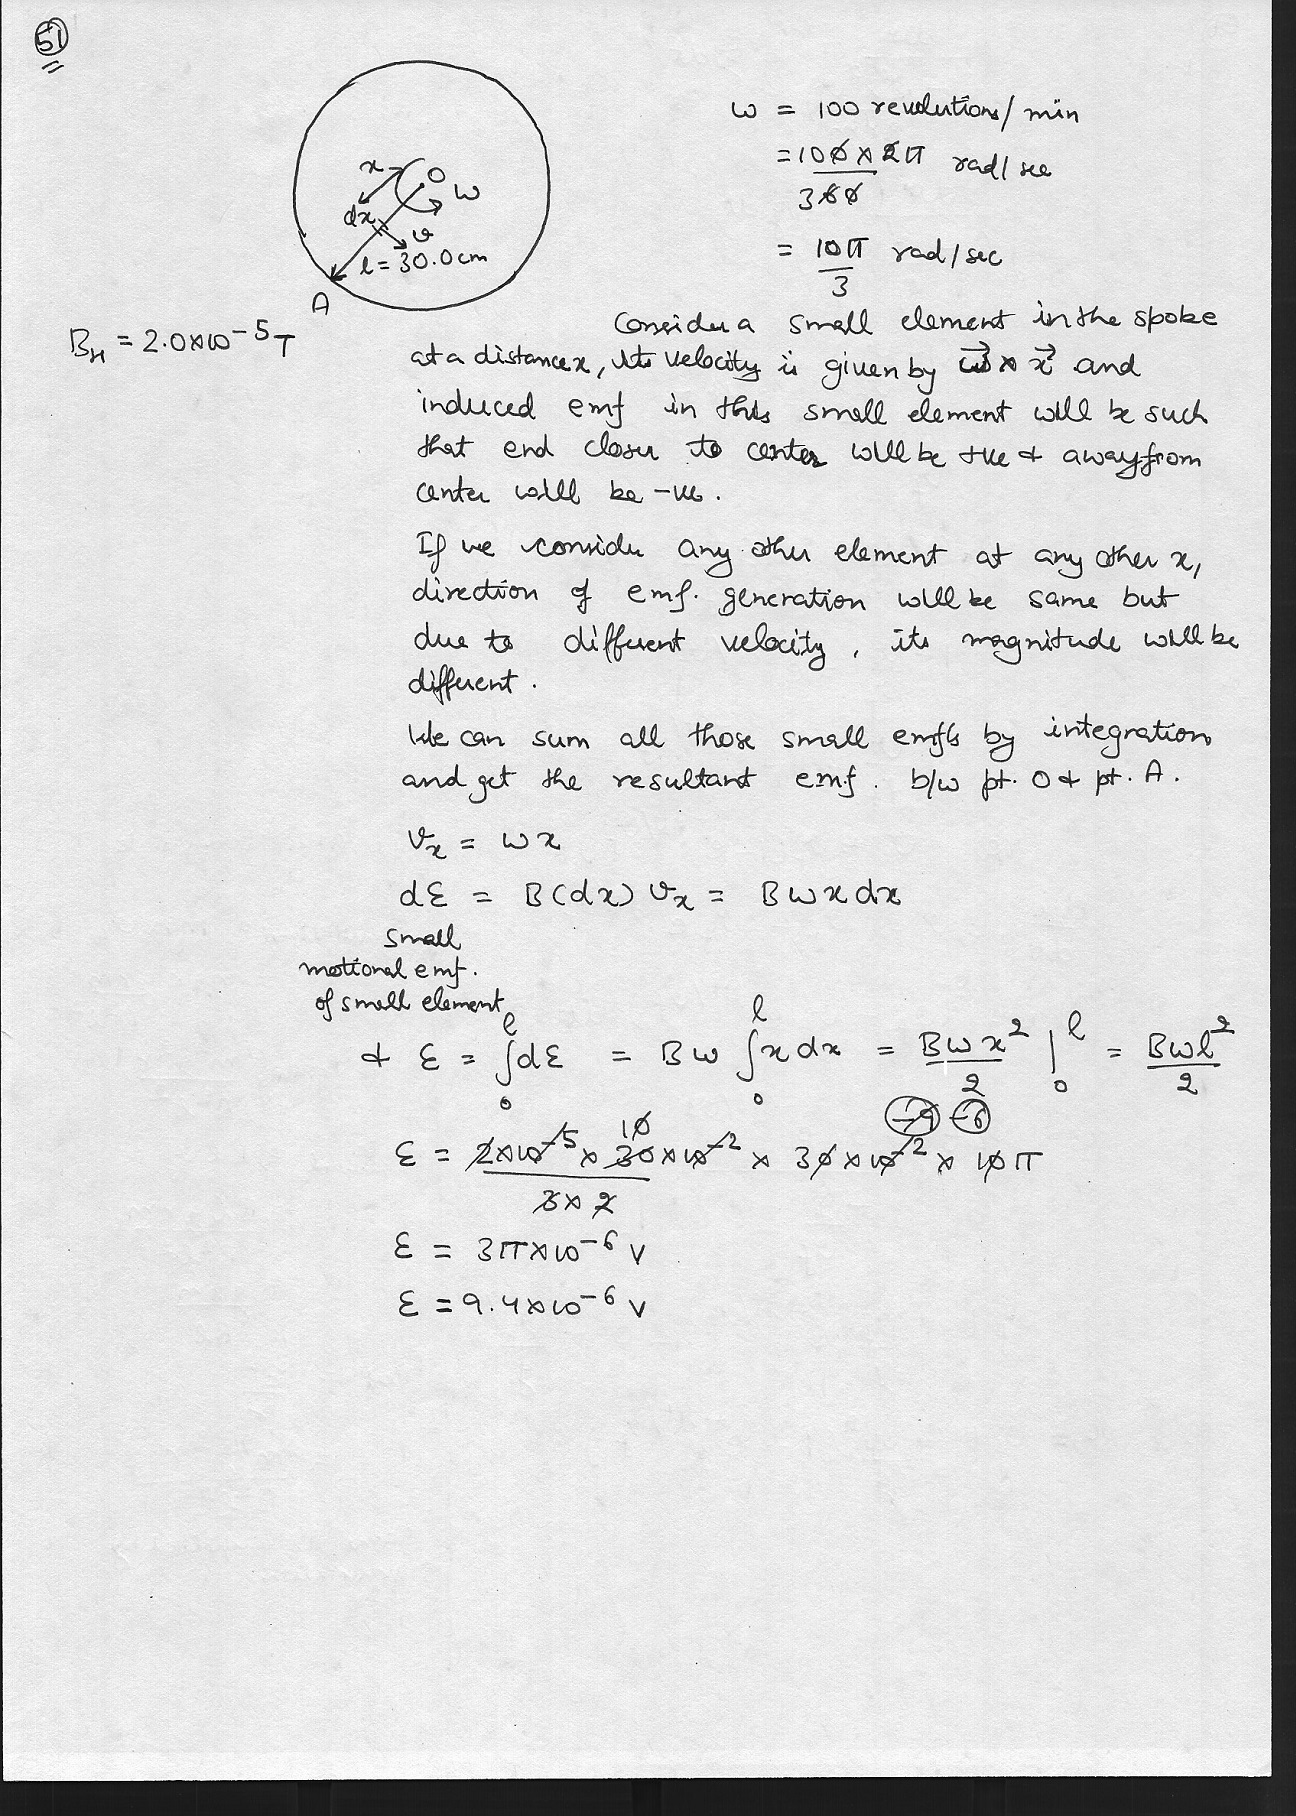 51
ω = 100 revolutions/min
= 100 × 2π rad/sec
3 60
= 10π rad/sec
3
x
O
ω
dx
v
l = 30.0cm
A
B_H = 2.0×10⁻⁵T
Consider a small element in the spoke
at a distance x, its velocity is given by ω⃗ × x⃗ and
induced emf in this small element will be such
that end closer to center will be +ve & away from
center will be -ve.
If we consider any other element at any other x,
direction of emf. generation will be same but
due to different velocity, its magnitude will be
different.
We can sum all those small emfs by integration
and get the resultant emf. b/w pt. O & pt. A.
v_x = ωx
dƐ = B(dx) v_x = Bωx dx
small
motional emf.
of small element
& Ɛ = ∫₀ˡ dƐ = Bω ∫₀ˡ x dx = Bωx²/2 |₀ˡ = Bωl²/2
10 -9 -6
Ɛ = 2×10⁻⁵ × 30×10⁻² × 30×10⁻² × 10π
3×2
Ɛ = 3π×10⁻⁶ V
Ɛ = 9.4×10⁻⁶ V